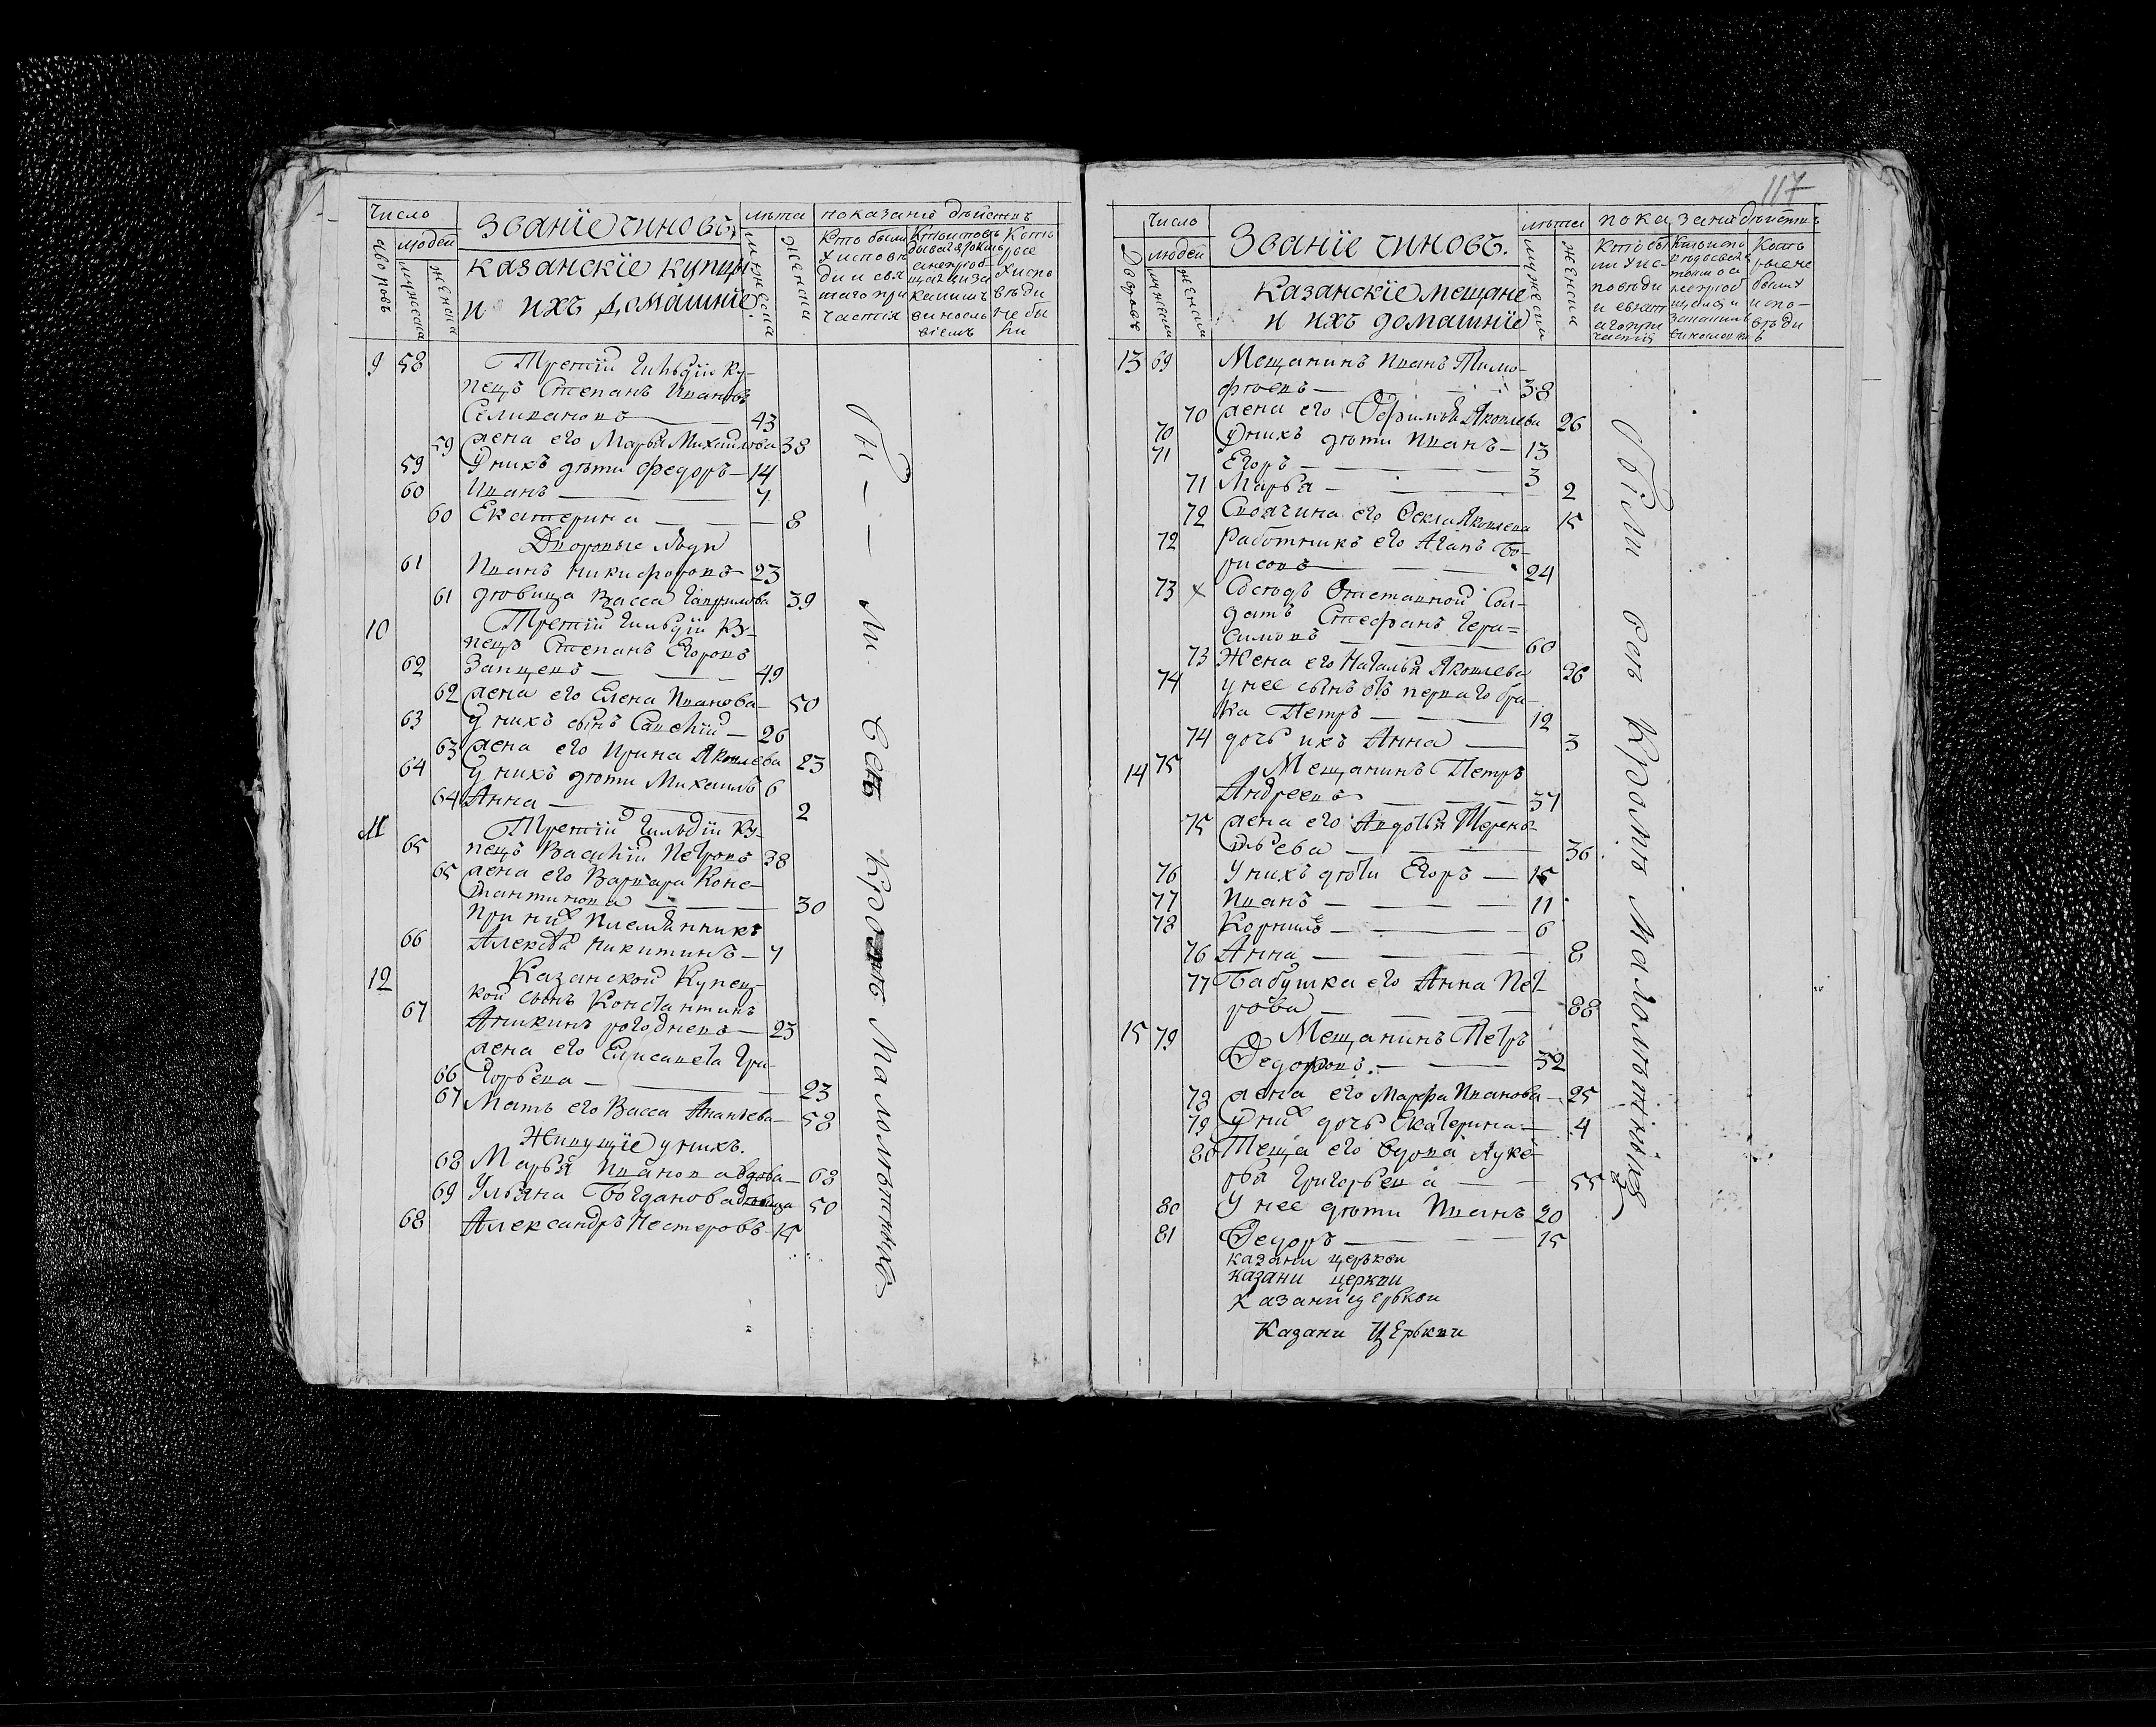 Число
люdей
дворовъ
мужеска
женска
Званїе чиновъ
казанскїе купцы
и ихъ домашнїе.
лѣта
мужеска
женска
показанїе дѣйствъ
Кто были
у исповѣ
ди и свя
таго при
частїя
не бы
ли
9 58 Третїй гильдїи ку-
пецъ Степанъ Ивановъ
Селивановъ 43
59 жена его Марья Михайлова 38
59 У нихъ дѣти Федоръ 14
60 Иванъ 7
60 Екатерина 8
Дворовые люди
61 Иванъ Никифоровъ 23
61 дѣвица Васса Гаврилова 39
10 Третїй гильдїи ку-
пецъ Степанъ Егоровъ
62 49
62 жена его Елена Иванова 50
63 У нихъ сынъ Савелїй 26
63 жена его Ирина Яковлева 23
64 У нихъ дѣти Михаилъ 6
64 Анна 2
11 Третїй гильдїи ку-
65 пецъ Василїй Петровъ 38
65 жена его Варвара Конс-
тантинова 30
при них племянникъ
66 Алексѣй Никитинъ 7
12 Казанской Купец-
кой сынъ Константинъ
67 Аникинъ 23
жена его Елисавета Гри-
66 горьева 23
67 Мать его Васса Ананьева 58
Живущїе у нихъ.
68 Марья Иванова вдова 63
69 Ульяна Богданова дѣвица 50
68 Александръ Нестеровъ 15
Бы-ли всѣ кромѣ малолѣтнихъ
117
Число
людей
Дворовъ
мужеска
женска
Званїе чиновъ.
Казанскїе мещане
и ихъ домашнїе
лѣта
мужеска
женска
показанїя дѣйствъ
13 69 Мещанинъ Иванъ Тимо-
фѣевъ 38
70 жена его Ефимья Яковлева 26
70 У нихъ дѣти Иванъ 13
71 Егоръ 3
71 Марья 2
72 Своячина его Фекла Яковлева 15
72 Работникъ его Агапъ Бо-
рисовъ 24
73 х Сосѣдъ Отставной Сол-
датъ Стефанъ Гера=
симовъ 60
73 Жена его Наталья Яковлева 36
74 у нее сынъ отъ перваго бра-
ка Петръ 12
74 дочь ихъ Анна 3
14 75 Мещанинъ Петръ
Андреевъ 37
75 жена его Авдотья Терен-
тьева 36
76 У нихъ дѣти Егоръ 15
77 Иванъ 11
78 Корнилъ 6
76 Анна 8
77 Бабушка его Анна Пет-
рова 88
15 79 Мещанинъ Петръ
Федоровъ. 32
78 жена его Марфа Иванова 25
79 У них дочь Екатерина 4
80 Теща его вдова Луке-
рья Григорьева 55
80 У нее дѣти Иванъ 20
81 Федоръ 15
казани церькви
казани церкви
Казани церькви
Казани Церькви
Были всѣ Кромѣ Малолѣтнихъ